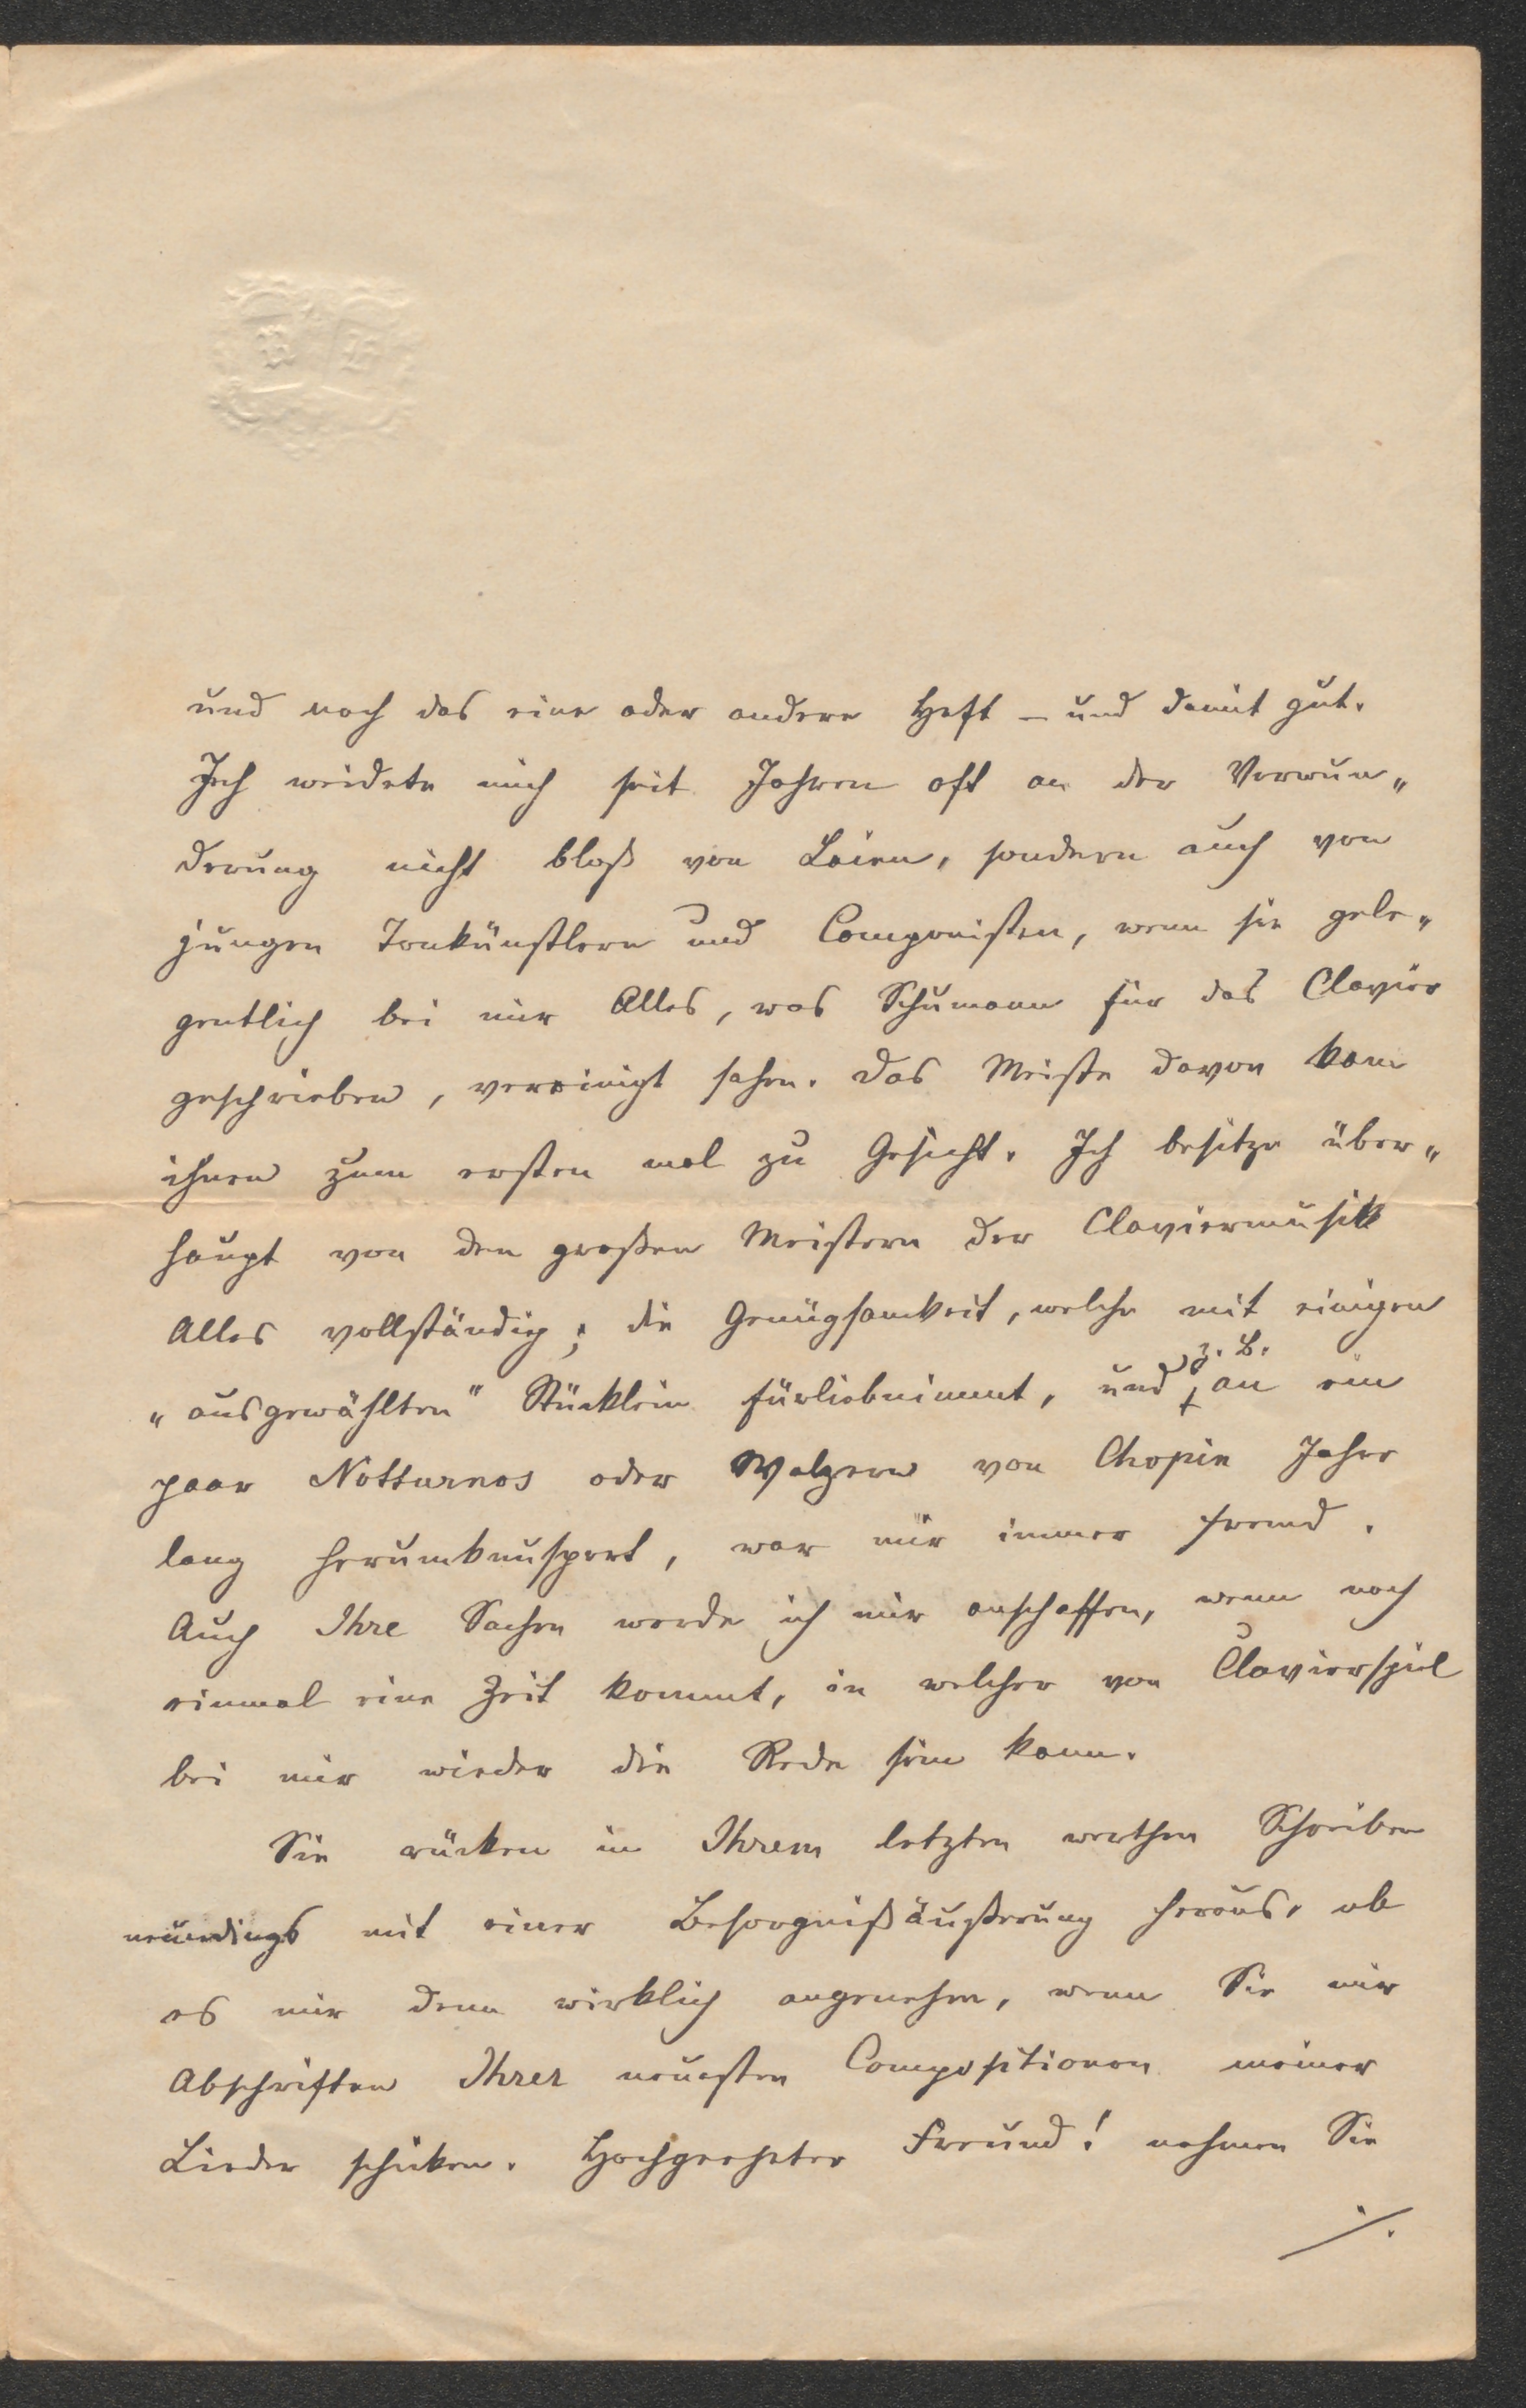 und noch das eine oder andere Heft – und damit gut.
Ich weidete mich seit Jahren oft an der Verwun„
derung nicht bloß von Laien, sondern auch von
jungen Tonkünstlern und Componisten, wenn sie gele„
gentlich bei mir Alles, was Schumann für das Clavier
geschrieben, vereinigt sahen. Das Meiste davon kam
ihnen zum ersten mal zu Gesicht. Ich besitze über„
haupt von den großen Meistern der Claviermusik
Alles vollständig; die Genügsamkeit, welche mit einigen
„ausgewählten" Stücklein fürliebnimmt, und z. B. an ein
paar Notturnos oder Walzern von Chopin Jahre
lang herumknuspert, war mir immer fremd.
Auch Ihre Sachen werde ich mir anschaffen, wenn noch
einmal eine Zeit kommt, in welcher von Clavierspiel
bei mir wieder die Rede sein kann.
Sie rücken in Ihrem letzten werthen Schreiben
neuerdings mit einer Besorgnißäußerung heraus, ob
es mir denn wirklich angenehm, wenn Sie mir
Abschriften Ihrer neuesten Compositionen meiner
Lieder schicken. Hochgeehrter Freund! nehmen Sie
./.